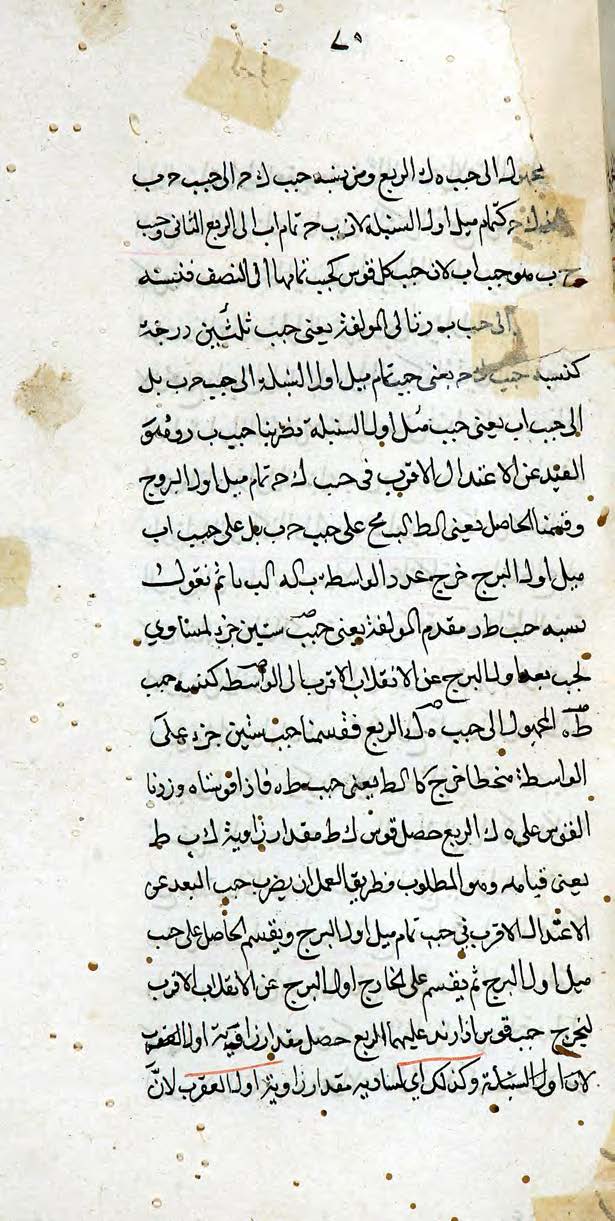 ٧٥
الى جيب ه ك الربع ومن نسبة جيب ك ح الى جيب ح ب
ك ح كتمام ميل اول السنبلة لان ب ح تمام اب الى الربع الثانى وجيب
ح ب هو جيب اب لان جيب كل قوس كجيب تمامها الى النصف فنسبه
الى جيب ب ر تالى المولفة يعنى جيب ثلثين درجة
كنسبة جيب ك ح يعنى جيب تمام ميل اول السنبلة الى جيب ح ب بل
الى جيب اب يعنى جيب ميل اول السنبلة فضربنا جيب ب ر وهو
البعد عن الاعتدال الاقرب فى جيب ك ح تمام ميل اول البروج
وقسمنا الحاصل يعنى على جيب ح ب بل على جيب اب
ميل اول البرج خرج عدد الواسطة ثم نقول
نسبة جيب ط ر مقدم المولفة يعنى جيب ستين جزء المساوي
لجيب بعد اول البرج عن الانقلاب الاقرب الى الواسطة كنسبة جيب
ط ه المجهول الى جيب ه ك الربع فقسمنا جيب ستين جزء على
الواسطة منحطا خرج يعنى جيب ط ه فاذا قوسناه وزدنا
القوس على ه ك الربع حصل قوس ك ط مقدار زاوية ك ب ط
يعنى وهو المطلوب وطريق العمل ان يضرب جيب البعد عن
الاعتدال الاقرب فى جيب تمام ميل اول البرج ويقسم الحاصل على جيب
ميل اول البرج ثم يقسم على الخارج اول البرج عن الانقلاب الاقرب
ليخرج جيب قوس اذا زيد عليها الربع حصل مقدار زاوية اول العقرب
لان اول السنبلة وكذلك اى لمساويه مقدار زاوية اول العقرب لان